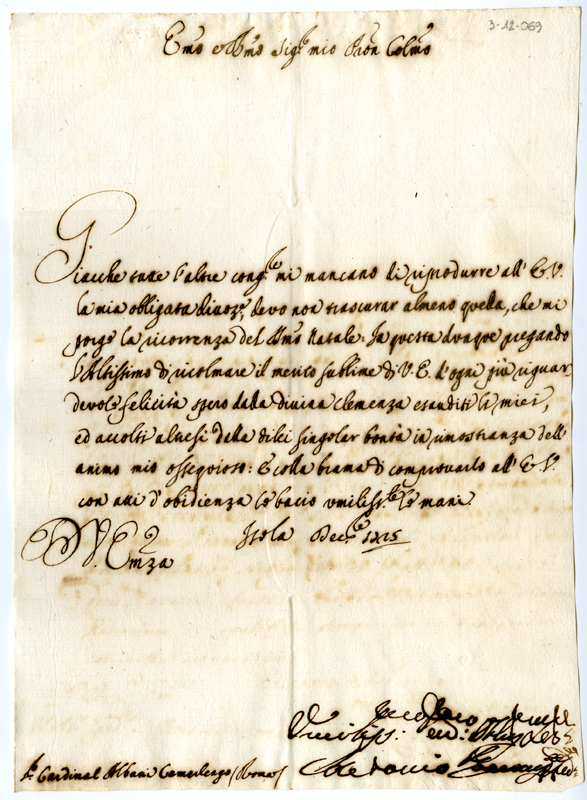 3-12-069
Emo e Rmo Sigre mio Pron Colmo
Giacche tutte l'altre congre mi mancano di riprodurre all' E.V.
la mia obligata divoze, devo non trascurar almeno quella, che mi
porge la ricorrenza del Smo Natale: In questa dunque pregando
l'Altissimo di ricolmare il merito sublime di V.E. d'ogni più riguar-
devole felicità spero dalla divina clemenza esauditi li miei,
ed accolti altresì dalla di lei singolar bontà in rimostranza dell'
animo mio ossequioso: E colla brama di comprovarlo all' E.V.
con atti d'obidienza le bacio umilisste le mani.
D. V. Emza
Isola Decre 1715
Umiliss: ed: Oblig
Antonio
Sr Cardinal Albani Camerlengo (Roma)